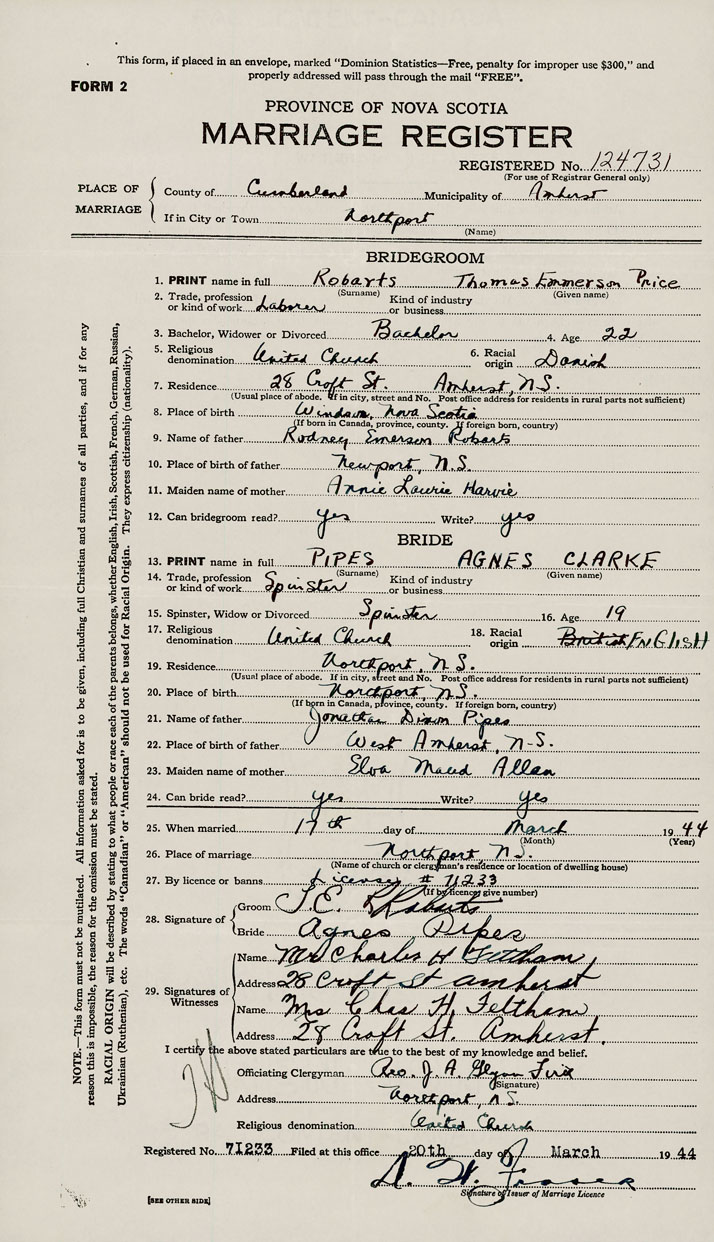 This form, if placed in an envelope, marked "Dominion Statistics—Free, penalty for improper use $300," and
properly addressed will pass through the mail "FREE".
FORM 2
PROVINCE OF NOVA SCOTIA
MARRIAGE REGISTER
REGISTERED No. 124731
(For use of Registrar General only)
PLACE OF MARRIAGE
County of Cumberland Municipality of Amherst
If in City or Town Northport
(Name)
BRIDEGROOM
1. PRINT name in full Robarts Thomas Emmerson Price
(Surname) (Given name)
2. Trade, profession or kind of work Laborer Kind of industry or business
3. Bachelor, Widower or Divorced Bachelor 4. Age 22
5. Religious denomination United Church 6. Racial origin Danish
7. Residence 28 Croft St. Amherst, N.S.
(Usual place of abode. If in city, street and No. Post office address for residents in rural parts not sufficient)
8. Place of birth Windsor, Nova Scotia
(If born in Canada, province, county. If foreign born, country)
9. Name of father Rodney Emerson Robarts
10. Place of birth of father Newport, N.S.
11. Maiden name of mother Annie Laurie Harvie
12. Can bridegroom read? yes Write? yes
BRIDE
13. PRINT name in full PIPES AGNES CLARKE
(Surname) (Given name)
14. Trade, profession or kind of work Spinster Kind of industry or business
15. Spinster, Widow or Divorced Spinster 16. Age 19
17. Religious denomination United Church 18. Racial origin British ENGlISH
19. Residence Northport, N.S.
(Usual place of abode. If in city, street and No. Post office address for residents in rural parts not sufficient)
20. Place of birth Northport, N.S.
(If born in Canada, province, county. If foreign born, country)
21. Name of father Jonathan Dixon Pipes
22. Place of birth of father West Amherst, N-S.
23. Maiden name of mother Elva Maud Allan
24. Can bride read? yes Write? yes
25. When married 17th day of March 1944
(Month) (Year)
26. Place of marriage Northport N.S.
(Name of church or clergyman's residence or location of dwelling house)
27. By licence or banns License # 71233
(If by licence give number)
28. Signature of
Groom T.E. Robarts
Bride Agnes Pipes
29. Signatures of Witnesses
Name Mr Charles H Feltham
Address 28 Croft St amherst
Name Mrs Chas H. Feltham
Address 28 Croft St. Amherst.
I certify the above stated particulars are true to the best of my knowledge and belief.
Officiating Clergyman Rev. J. A. Glynn
(Signature)
Address Northport, N.S.
Religious denomination United Church
Registered No. 71233 Filed at this office 20th day of March 1944
Fraser
Signature of Issuer of Marriage Licence
[SEE OTHER SIDE]
NOTE.—This form must not be mutilated. All information asked for is to be given, including full Christian and surnames of all parties, and if for any
reason this is impossible, the reason for the omission must be stated.
RACIAL ORIGIN will be described by stating to what people or race each of the parents belongs, whether English, Irish, Scottish, French, German, Russian,
Ukrainian (Ruthenian), etc. The words "Canadian" or "American" should not be used for Racial Origin. They express citizenship (nationality).